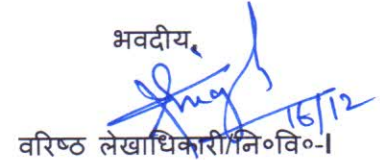 भवदीय,
16/12
वरिष्ठ लेखाधिकारी/नि०वि०-I